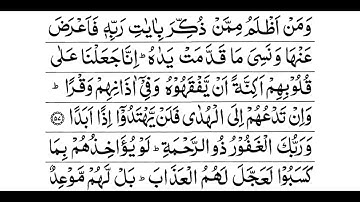 وَمَنْ اَظْلَمُ مِمَّنْ ذُكِّرَ بِاٰيٰتِ رَبِّهٖ فَاَعْرَضَ
عَنْهَا وَنَسِيَ مَا قَدَّمَتْ يَدٰهُ ؕ اِنَّا جَعَلْنَا عَلٰى
قُلُوْبِهِمْ اَكِنَّةً اَنْ يَّفْقَهُوْهُ وَفِيْۤ اٰذَانِهِمْ وَقْرًا ؕ
وَاِنْ تَدْعُهُمْ اِلَى الْهُدٰى فَلَنْ يَّهْتَدُوْۤا اِذًا اَبَدًا ﴿۵۷﴾
وَرَبُّكَ الْغَفُوْرُ ذُو الرَّحْمَةِ ؕ لَوْ يُؤَاخِذُهُمْ بِمَا
كَسَبُوْا لَعَجَّلَ لَهُمُ الْعَذَابَ ؕ بَلْ لَّهُمْ مَّوْعِدٌ